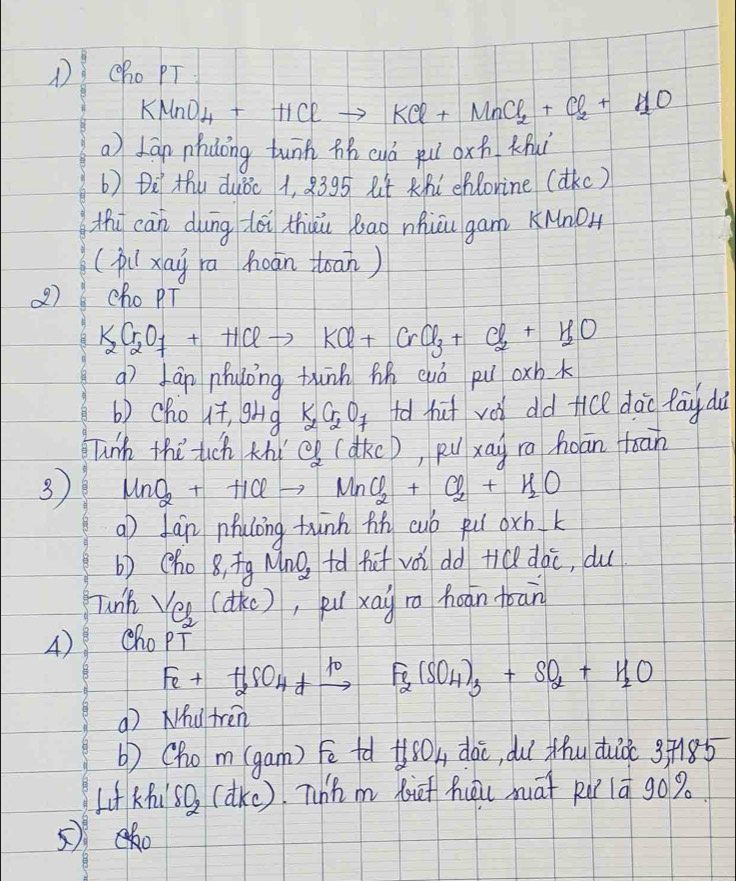 1) Cho PT
KMnO4 + HCl → KCl + MnCl2 + Cl2 + H2O
a) Lập phương trình hh của pứ oxh khử
b) Để thu được 1,2395 lít khí chlorine (đkc)
thì cần dùng tối thiểu bao nhiêu gam KMnO4
(pứ xảy ra hoàn toàn)
2) Cho PT
K2Cr2O7 + HCl → KCl + CrCl3 + Cl2 + H2O
a) Lập phương trình hh của pứ oxh_k
b) Cho 17,94g K2Cr2O7 td hết với dd HCl đặc lấy dư
Tính thể tích khí Cl2 (đkc), pứ xảy ra hoàn toàn
3) MnO2 + HCl → MnCl2 + Cl2 + H2O
a) Lập phương trình hh của pứ oxh_k
b) Cho 8,7g MnO2 td hết với dd HCl đặc, dư
Tính VCl2 (đkc), pứ xảy ra hoàn toàn
4) Cho PT
Fe + H2SO4 đ to → Fe2(SO4)3 + SO2 + H2O
a) Như trên
b) Cho m (gam) Fe td H2SO4 đặc, dư thu được 3,7185
Lít khí SO2 (đkc). Tính m biết hiệu suất pứ là 90%.
5) Cho